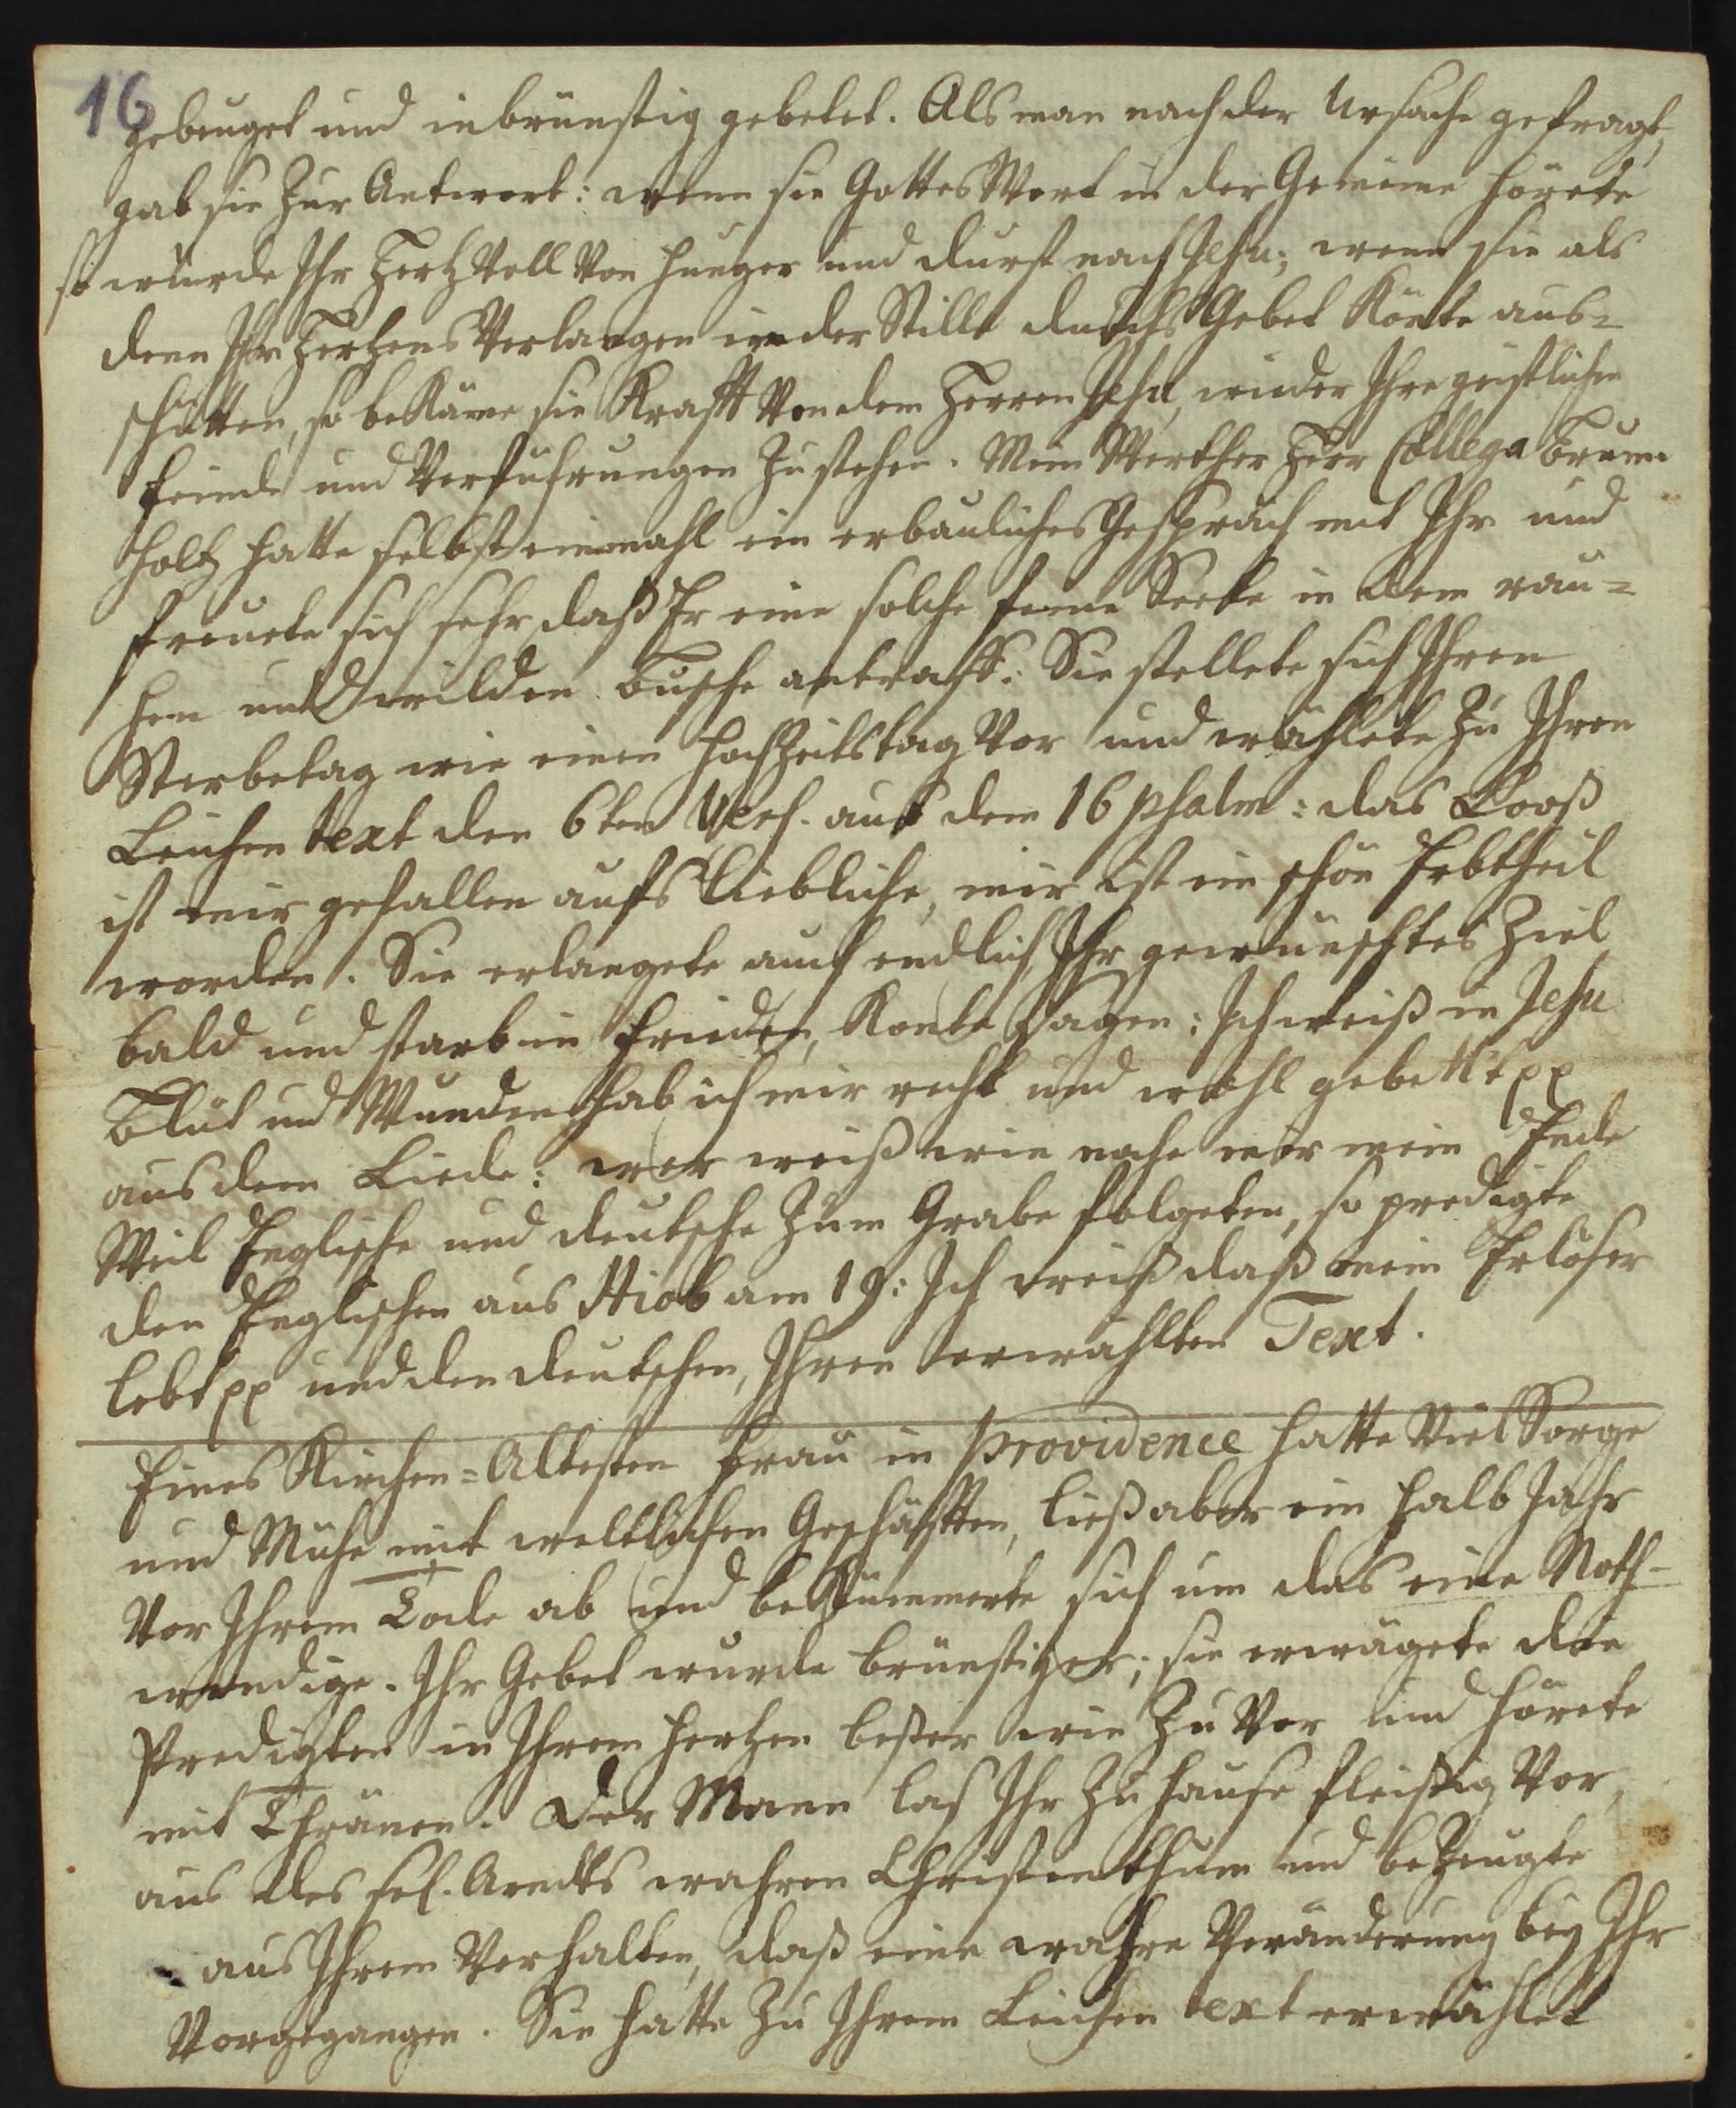 16
gebeuget und inbrünstig gebetet. Als man nach der Ursache gefragt,
gab sie zur Antwort: wenn sie Gottes Wort in der Gemeine hörete
so würde Ihr Hertz voll von Hunger und Durst nach Jesu; wenn sie als
denn Ihr Hertzens Verlangen in der Stille durchs Gebet könte aus-
schütten, so bekäme sie Krafft von dem Herren Jesu, wieder Ihre geistlichen
Feinde und Verführungen zu stehen. Mein Werther Herr Collega Brunn
holtz hatte selbst einmahl ein erbauliches Gespräch mit Ihr und
freuete sich sehr, daß Er eine solche feine Seele in dem rau=
hen und wilden Busche antraff. Sie stellete sich Ihren
Sterbetag wie einen Hochzeitstag vor und erwählete zu Ihren
Leichen text den 6ten Vers. aus dem 16 psalm: das Looß
ist mir gefallen aufs liebliche, mir ist ein schön Erbtheil
worden. Sie erlangete auch endlich Ihr gewünschtes Ziel
bald und starb in Frieden, konte sagen: Ich weiß in Jesu
Blut und Wunden hab ich mir recht und wohl gebettet pp
aus dem Liede: wer weiß wie nahe mir mein Ende
Weil Englische und deutsche zum Grabe folgeten, so predigte
den Englischen aus Hiob am 19: Ich weiß daß mein Erlöser
lebt pp und den deutschen, Ihren erwählten Text.
Eines Kirchen=Altesten Frau in providence hatte viel Sorge
und Mühe mit weltlichen Geschäfften, ließ aber ein halb Jahr
vor Ihrem Tode ab und bekümmerte sich um das eine Noth-
wendige. Ihr Gebet wurde brünstiger; sie erwägete die
Predigten in Ihrem Hertzen besser wie zu vor und hörete
mit Thränen. Der Mann las Ihr zu Hause fleissig vor,
aus des sel. Arndts wahren Christenthum und bezeugte
aus Ihrem Verhalten, daß eine wahre Veränderung bey Ihr
vorgegangen. Sie hatte zu Ihrem Leichen text erwählet